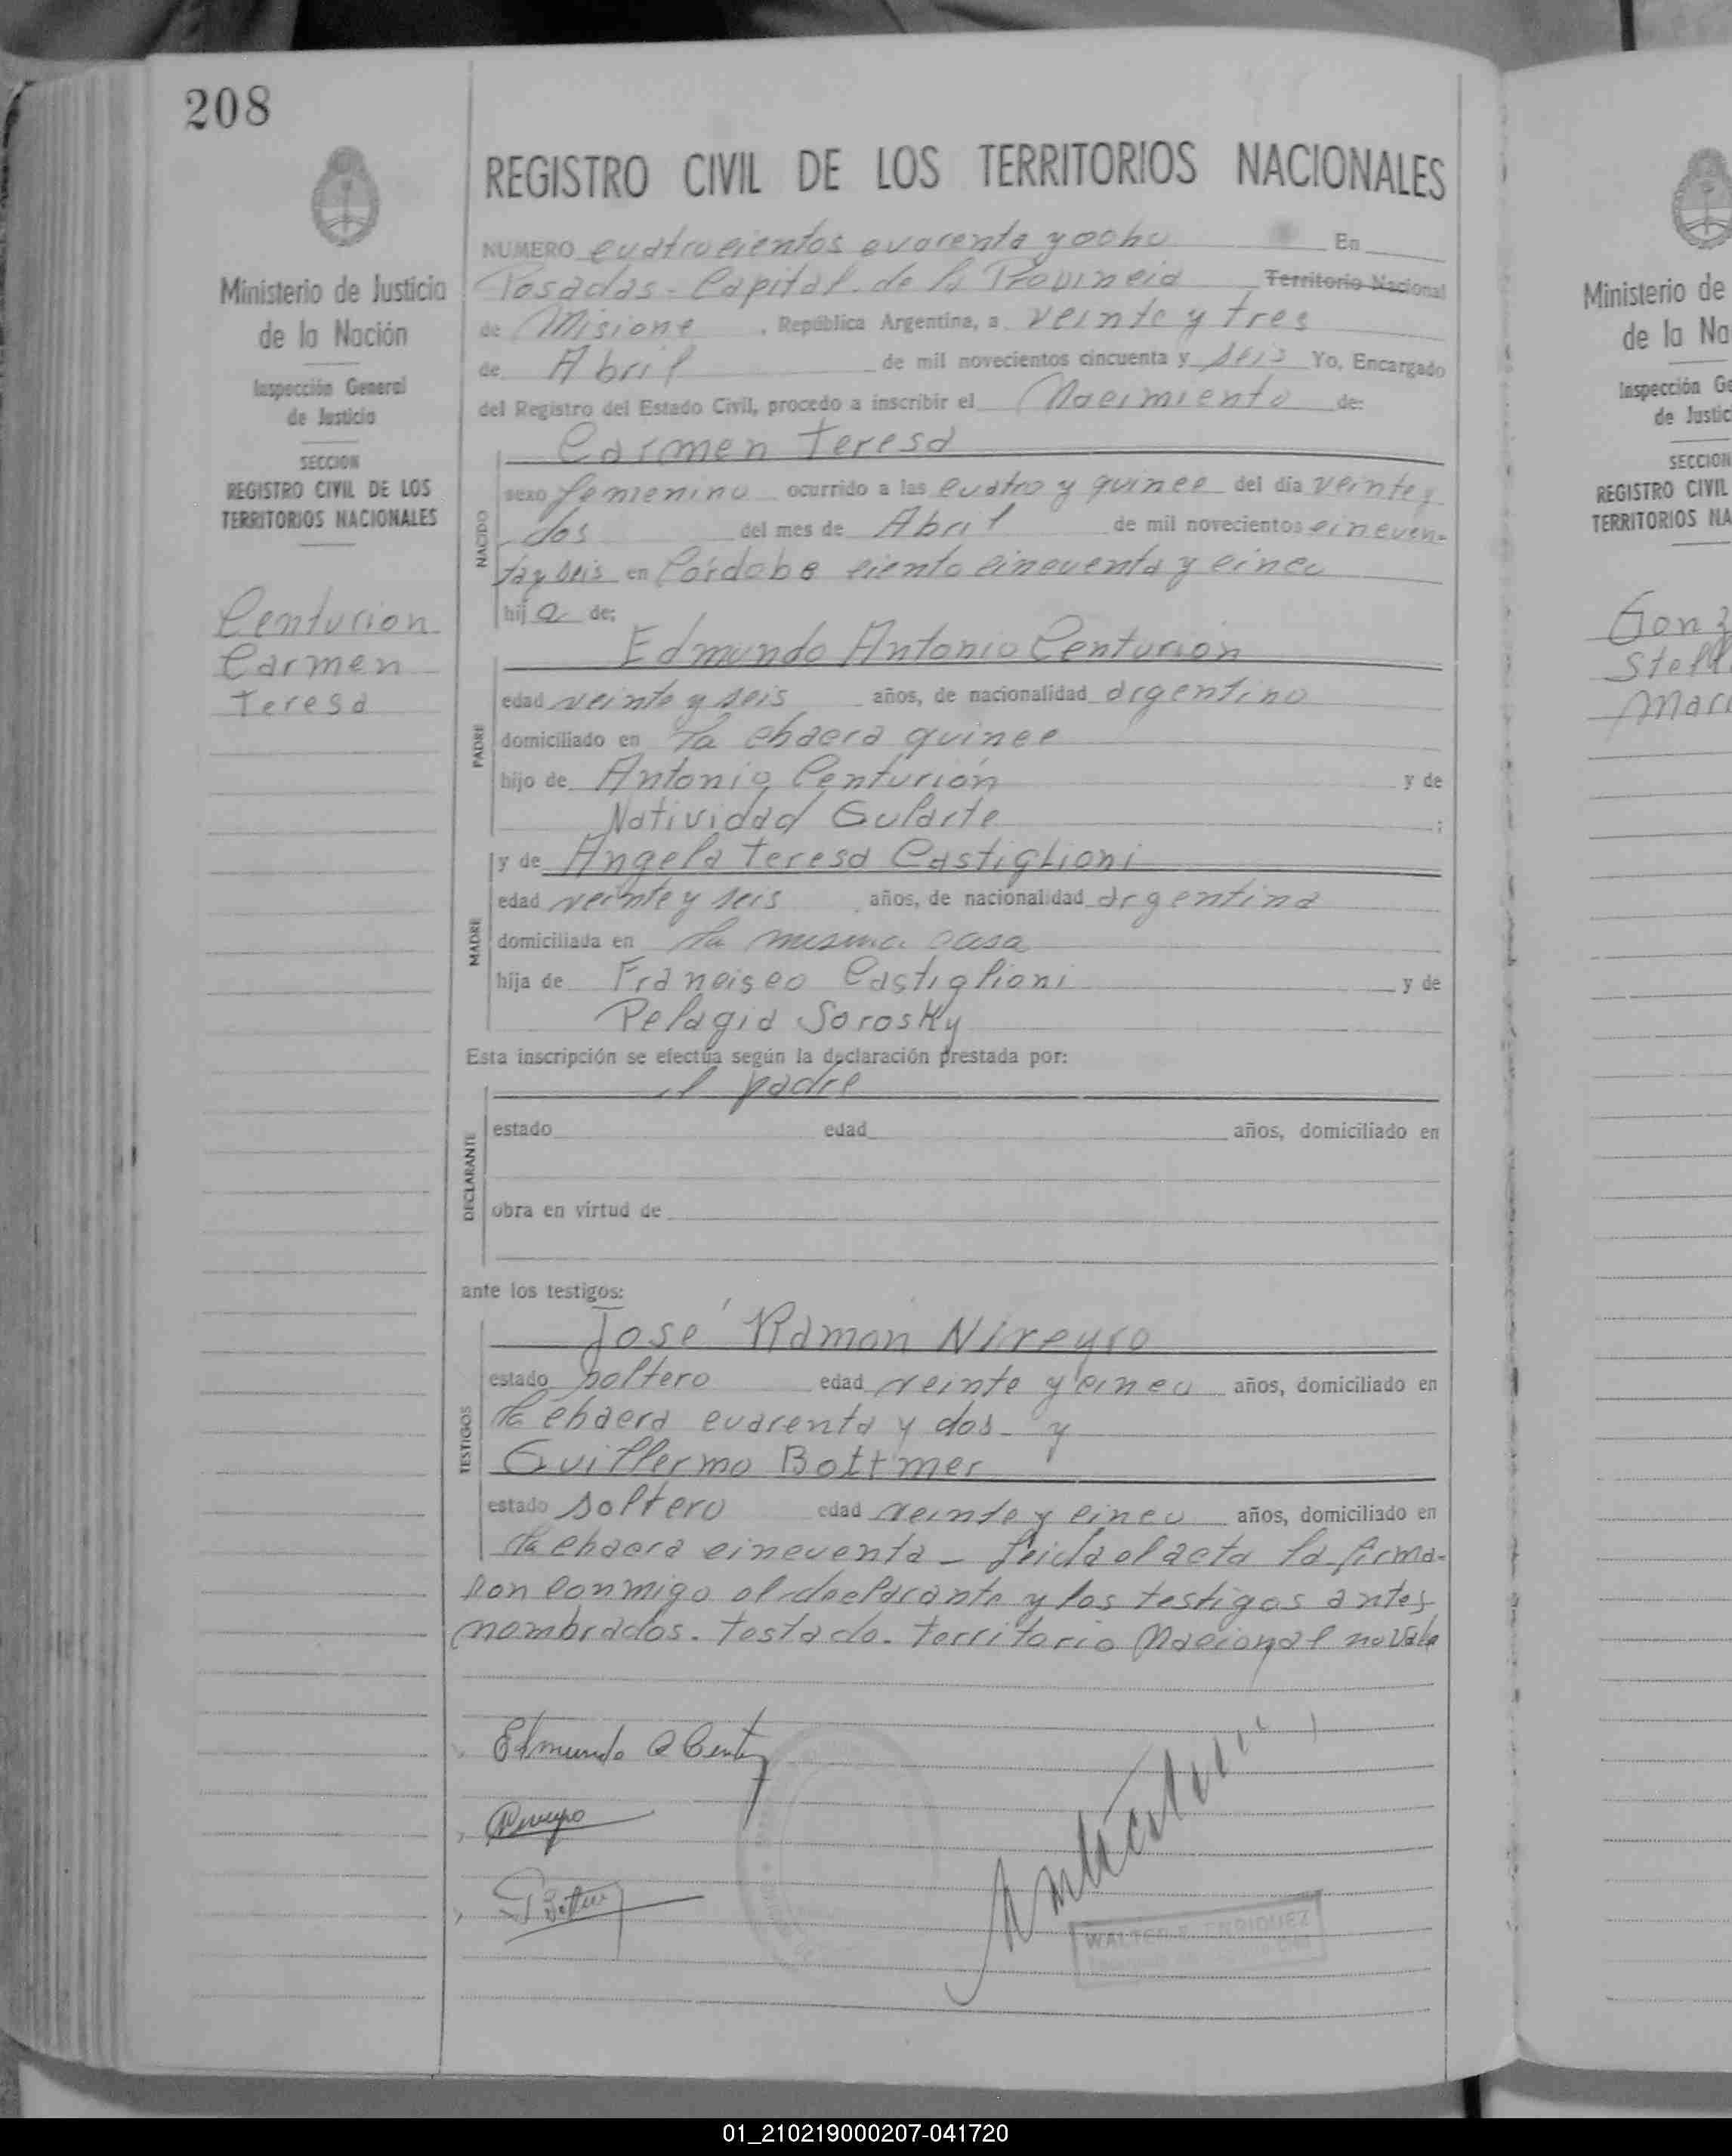 208
REGISTRO CIVIL DE LOS TERRITORIOS NACIONALES
Ministerio de Justicia
de la Nación
Inspección General
de Justicia
SECCION
REGISTRO CIVIL DE LOS
TERRITORIOS NACIONALES
Centurion
Carmen
Teresa
NUMERO cuatrocientos cuarenta y ocho En
Posadas - Capital de la Provincia Territorio Nacional
de Misione , República Argentina, a veinte y tres
de Abril de mil novecientos cincuenta y seis Yo, Encargado
del Registro del Estado Civil, procedo a inscribir el Nacimiento de:
Carmen Teresa
NACIDO
sexo femenino ocurrido a las cuatro y quince del día veinte y
dos del mes de Abril de mil novecientos cincuen-
ta y seis en Córdoba ciento cincuenta y cinco
hija de:
Edmundo Antonio Centurión
PADRE
edad veinte y seis años, de nacionalidad argentino
domiciliado en la chacra quince
hijo de Antonio Centurión y de
Natividad Gularte ;
MADRE
y de Angela Teresa Castiglioni
edad veinte y seis años, de nacionalidad argentina
domiciliada en la misma casa
hija de Francisco Castiglioni y de
Pelagia Sorosky
Esta inscripción se efectúa según la declaración prestada por:
el padre
DECLARANTE
estado edad años, domiciliado en
obra en virtud de
ante los testigos:
José Ramón Nireyro
TESTIGOS
estado soltero edad veinte y cinco años, domiciliado en
la chacra cuarenta y dos - y
Guillermo Bottmer
estado soltero edad veinte y cinco años, domiciliado en
la chacra cincuenta - Leida el acta la firma-
ron conmigo el declarante y los testigos antes
nombrados. Testado. Territorio Nacional no vale
Edmundo A
WALTER ENRIQUEZ
Ministerio de
de la Na
Inspección Ge
de Justic
SECCION
REGISTRO CIVIL
TERRITORIOS NA
Gonz
Stell
Mari
01_210219000207-041720